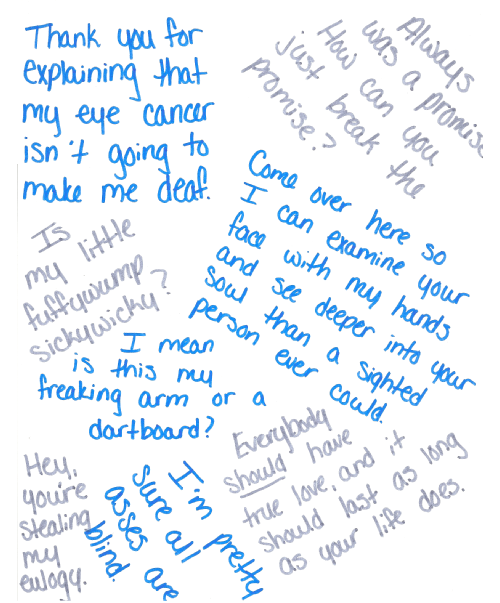 Thank you for
explaining that
my eye cancer
isn't going to
make me deaf.
Always
was a promise
How can you
just break the
promise?
Come over here so
I can examine your
face with my hands
and see deeper into your
soul than a sighted
person ever could.
Is
my little
fuffywump
sickywicky?
I mean
is this my
freaking arm or a
dartboard?
Everybody
should have
true love, and it
should last as long
as your life does.
Hey,
you're
stealing
my
eulogy.
I'm pretty
sure all
asses are
blind.